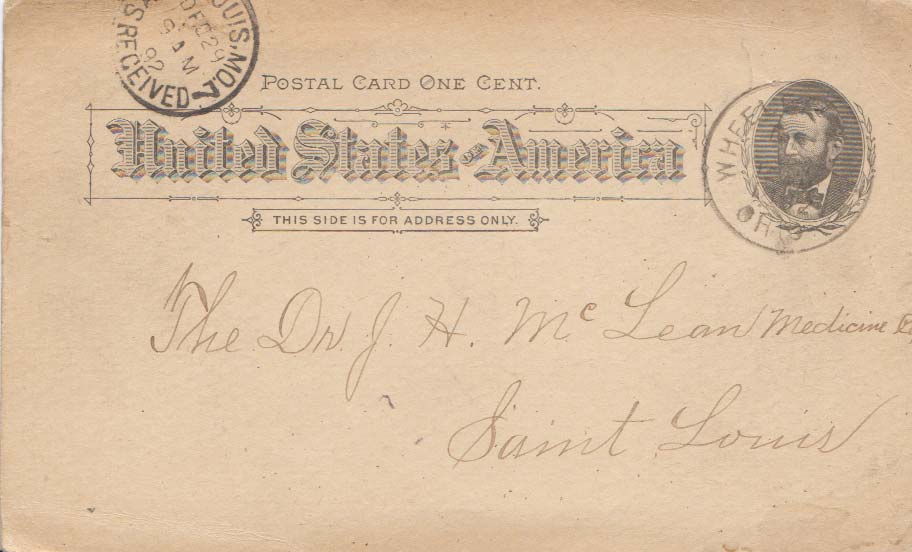 LOUIS, MO.
DEC 29
9 AM
92
RECEIVED
POSTAL CARD ONE CENT.
United States OF America
THIS SIDE IS FOR ADDRESS ONLY.
WHEE
OHIO
The Dr. J. H. McLean Medicine
Saint Louis